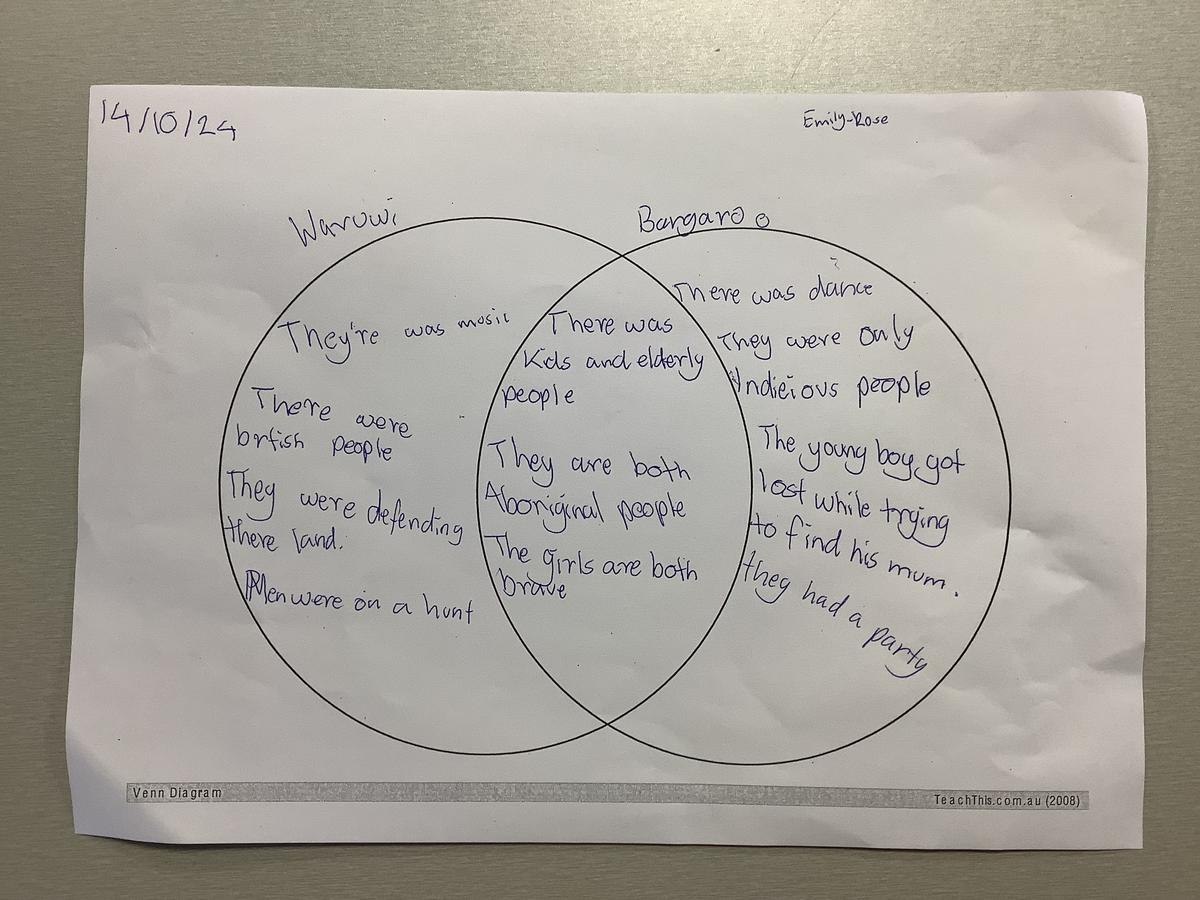 14/10/24
Emily-Rose
Waruwi
Bargaroo
They're was music
There were
brtish people
They were defending
there land.
Men were on a hunt
There was
Kids and elderly
people
They are both
Aboriginal people
The girls are both
brave
There was dance
They were only
Indieious people
The young boy got
lost while trying
to find his mum.
they had a party
Venn Diagram
TeachThis.com.au (2008)